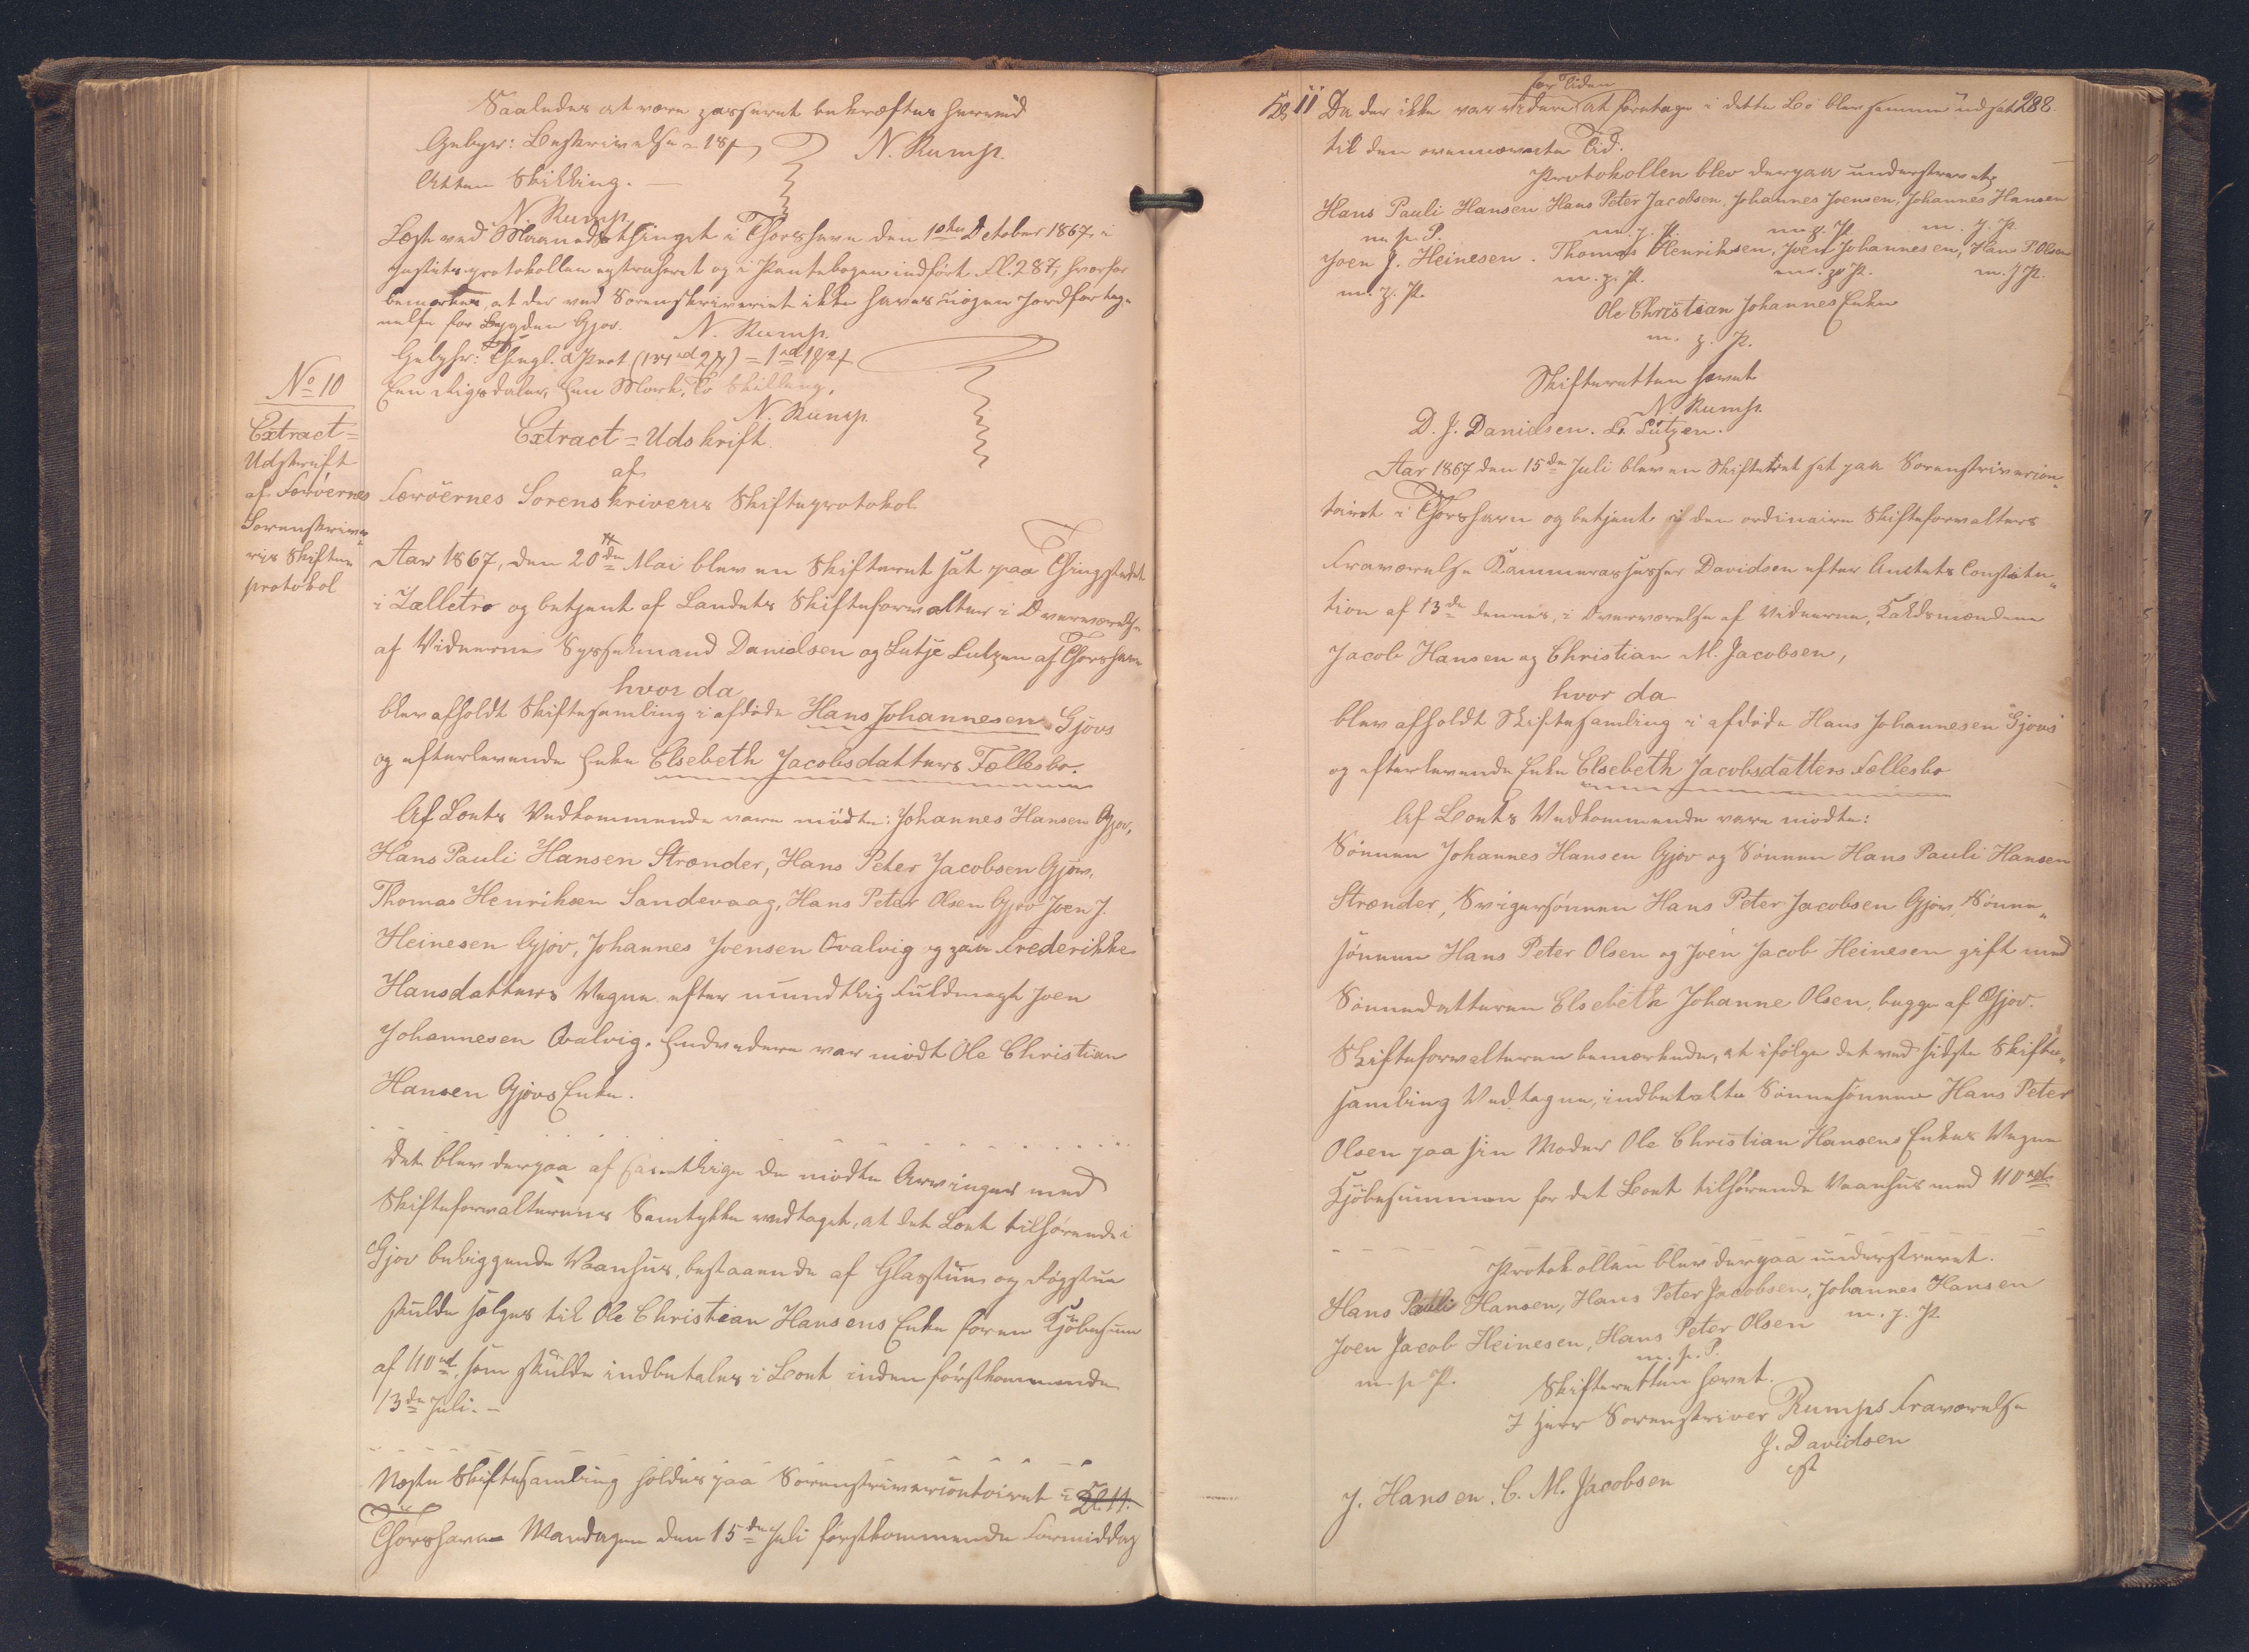 Saaledes at være passeret bekræftes herved
Gebyr: Beskrivelse = 18 ß N. Rump.
Atten Skilling. —
N. Rump.
Læst ved Maanedsthinget i Thorshavn den 1ste October 1867, i
Justitsprotokollen extraheret og i Pantebogen indført Fl. 287, hvorhos
bemærkes, at der ved Sorenskriveriet ikke haves nogen Jordforteg-
nelse for Bygden Gjov. N. Rump.
Gebyhr: Thingl. & Prot = 1 rd
Een Rigsdaler, Een Mark, To Skilling.
N. Rump.
No 10
Extract=
Udskrift
af Færöernes
Sorenskrive=
ries Skifte=
protokol
Extract=Udskrift
af
Færöernes Sorenskriveries Skifteprotokol
Aar 1867, den 20de Mai blev en Skifteret sat paa Thingstedet
i Zelletræ og betjent af Landets Skifteforvalter i Overværelse
af Vidnerne Sysselmand Danielsen og Lutje Lutzen af Thorshavn
hvor da
blev afholdt Skiftesamling i afdøde Hans Johannesen Gjovs
og efterlevende Enke Elsebeth Jacobsdatters Fællesbo.
Af Boets Vedkommende vare mødte: Johannes Hansen Gjov,
Hans Pauli Hansen Strænder, Hans Peter Jacobsen Gjov,
Thomas Henriksen Sandevaag, Hans Peter Olsen Gjov Joen J.
Heinesen Gjov, Johannes Joensen Qvalvig og paa Frederikke
Hansdatters Vegne efter mundtlig Fuldmagt Joen
Johannesen Qvalvig. Endvidere var mødt Ole Christian
Hansen Gjovs Enke.
Det blev derpaa af samtlige de mødte Arvinger med
Skifteforvalterens Samtykke vedtaget, at det Boet tilhørende i
Gjov beliggende Vaanhus, bestaaende af Glasstue og Røgstue
skulde sælges til Ole Christian Hansens Enke for en Kjøbesum
af 110 rd, som skulde indbetales i Boet inden førstkommende
13de Juli. —
Næste Skiftesamling holdes paa Sorenskrivercontoiret i Kl. 11.
Thorshavn Mandagen den 15de Juli førstkommende Formiddag
Kl. 11 Da der ikke var videre for Tiden at foretage i dette Bo blev samme udsat 288.
til den ovennævnte Tid.
Protokollen blev derpaa underskrevet,
Hans Pauli Hansen Hans Peter Jacobsen, Johannes Joensen, Johannes Hansen
m. p. P. m. p. P. m. p. P. m. p. P.
Joen J. Heinesen. Thomas Henriksen, Joen Johannesen, Hans P. Olsen
m. p. P. m. p. P. m. p. P. m. p. P.
Ole Christian Johannes Enke
m. p. P.
Skifteretten hævet
N. Rump.
D. J. Danielsen. L. Lützen.
Aar 1867 den 15de Juli blev en Skifteret sat paa Sorenskrivercon=
toiret i Thorshavn og betjent i den ordinaire Skifteforvalters
Fraværelse Kammerassessor Davidsen efter Amtets Constitu=
tion af 13de dennes, i Overværelse af Vidnerne, Kaldsmændene
Jacob Hansen og Christian M. Jacobsen,
hvor da
blev afholdt Skiftesamling i afdøde Hans Johannesen Gjovs
og efterlevende Enke Elsebeth Jacobsdatters Fællesbo
Af Boets Vedkommende vare mødte:
Sønnen Johannes Hansen Gjov og Sønnen Hans Pauli Hansen
Strænder, Svigersønnen Hans Peter Jacobsen Gjov, Sønne=
sønnen Hans Peter Olsen og Joen Jacob Heinesen gift med
Sønnedatteren Elsebeth Johanne Olsen, begge af Gjov.
Skifteforvalteren bemærkede, at ifølge det ved sidste Skifte=
samling Vedtagne, indbetalte Sønnesønnen Hans Peter
Olsen paa sin Moder Ole Christian Hansens Enkes Vegne
Kjøbesummen for det Boet tilhørende Vaanhus med 110 rd
Protokollen blev derpaa underskrevet.
Hans Pauli Hansen, Hans Peter Jacobsen, Johannes Hansen
m. p. P.
Joen Jacob Heinesen, Hans Peter Olsen
m. p. P. m. p. P.
Skifteretten hævet.
I Herr Sorenskriver Rumps Fraværelse
J. Davidsen
cst
J. Hansen. C. M. Jacobsen